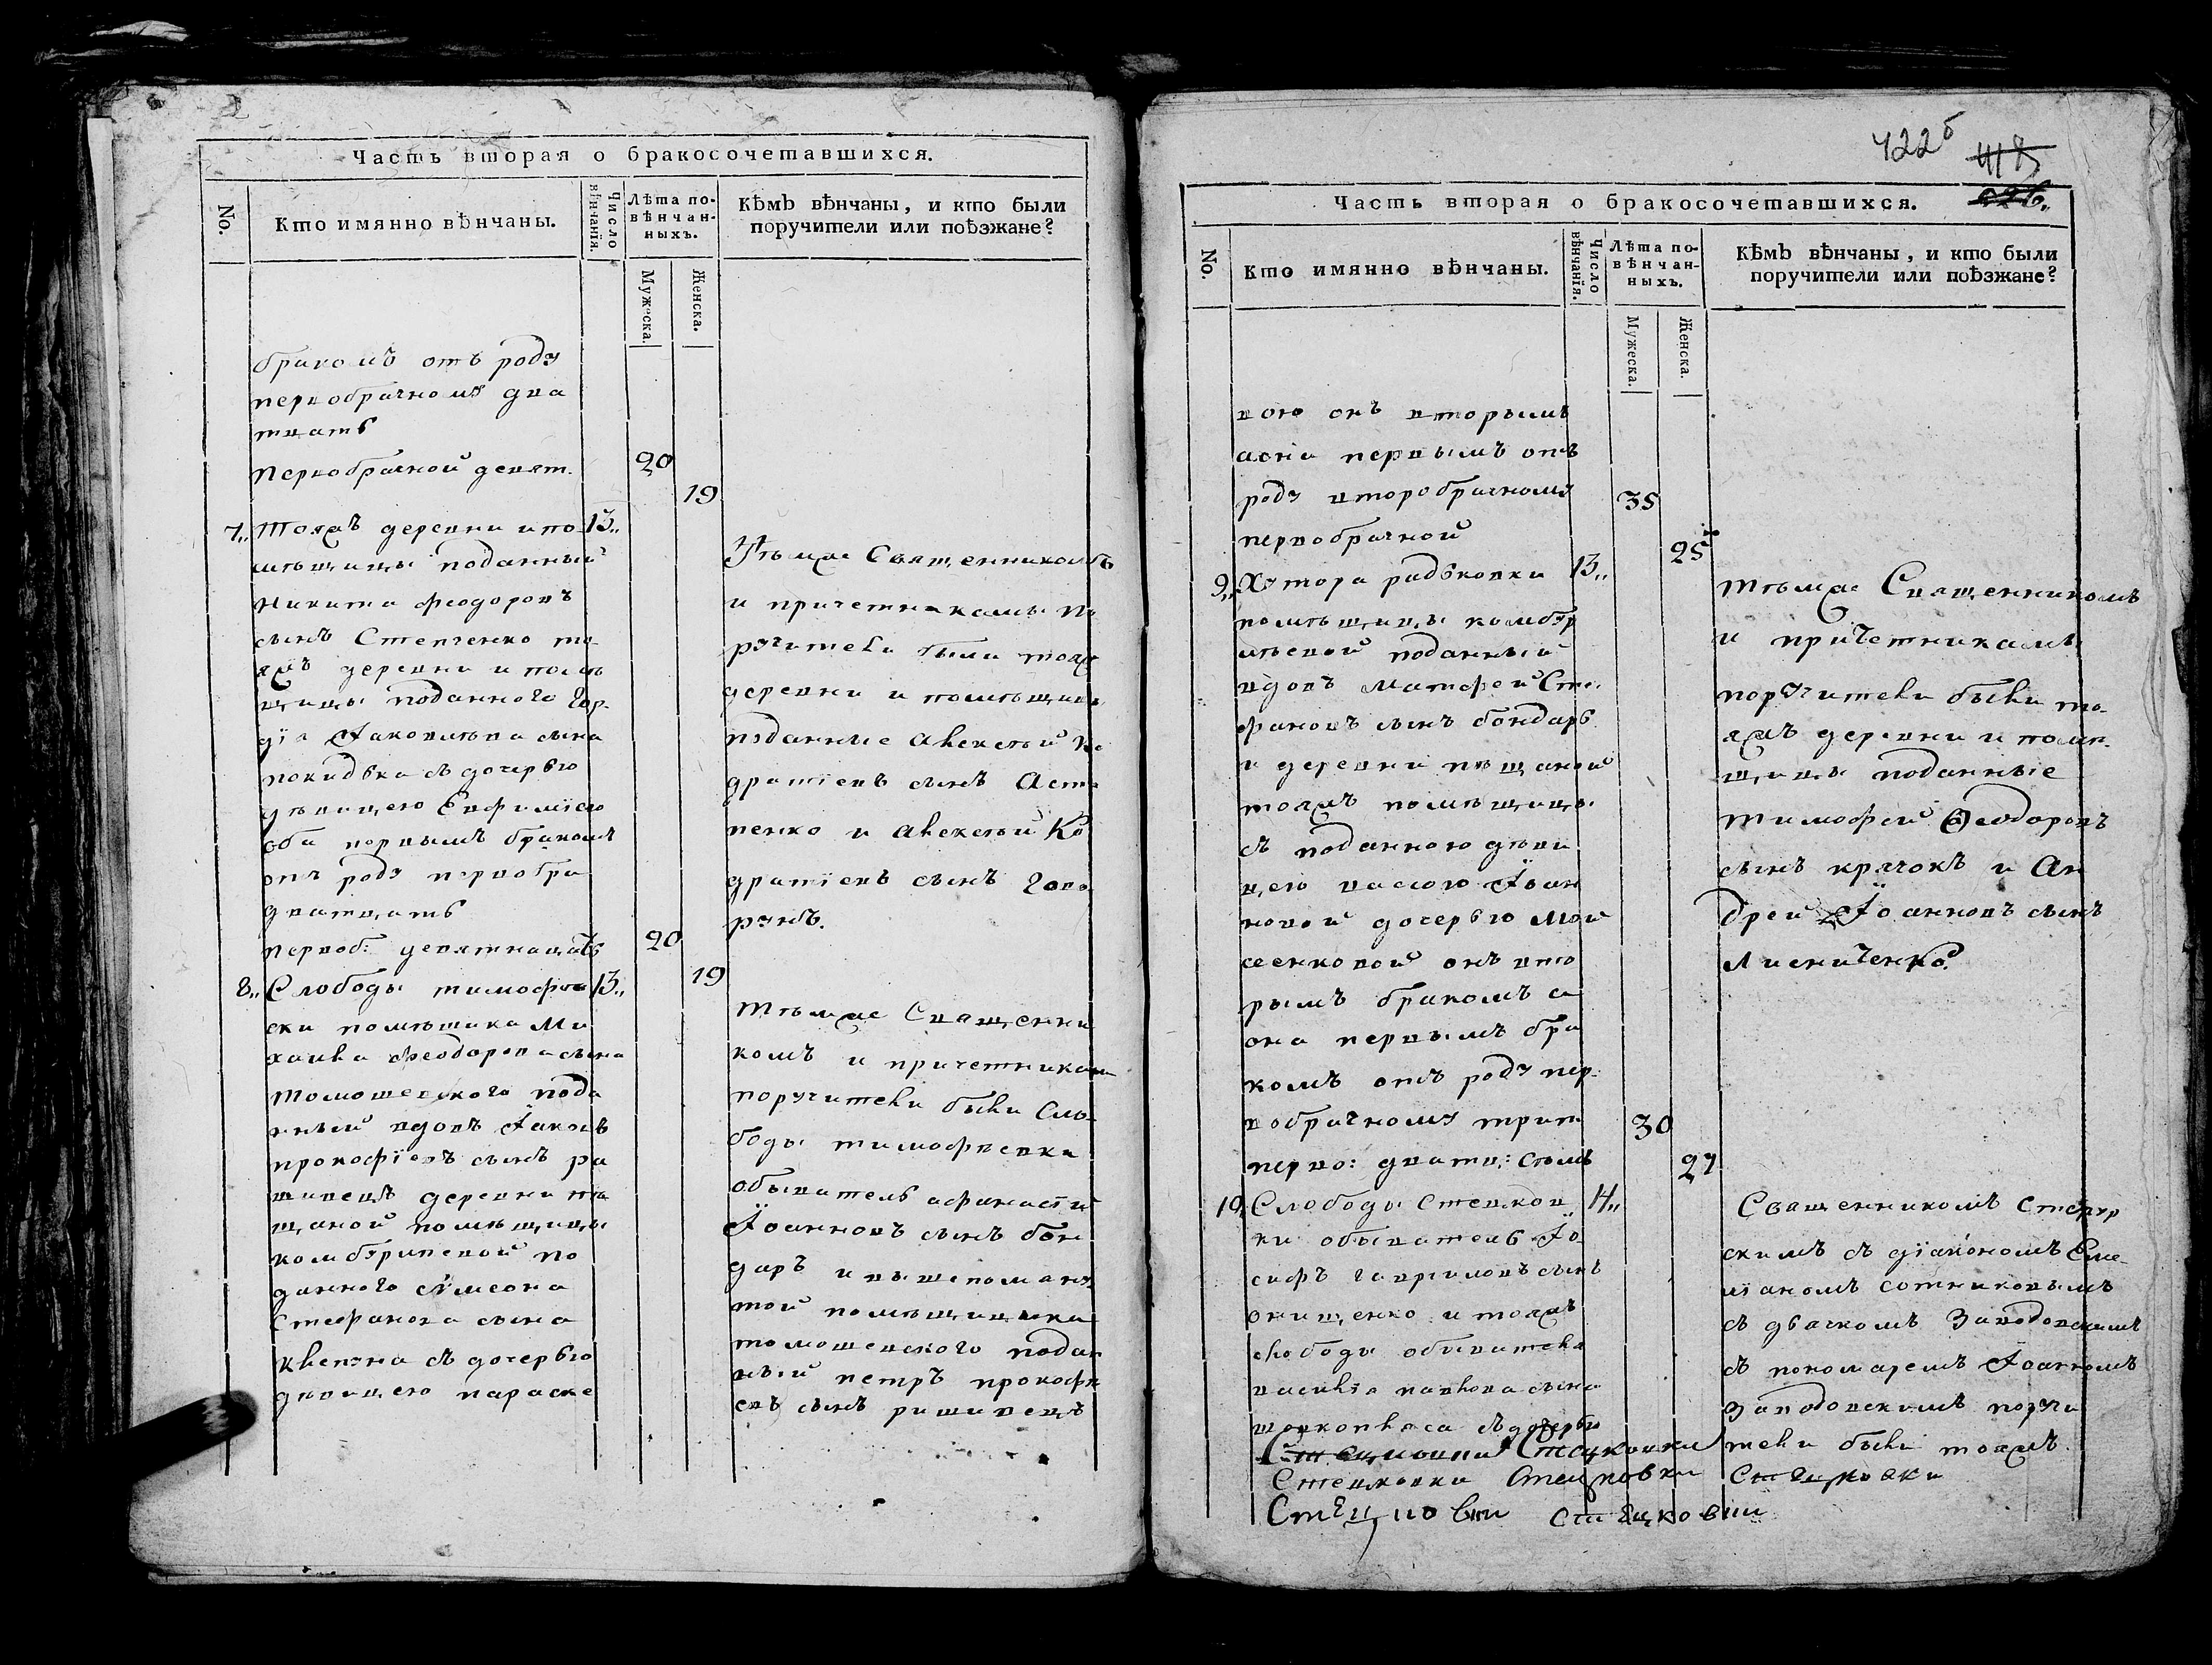 Часть вторая о бракосочетавшихся.
No.
Кто имянно вѣнчаны.
Число вѣнчанія.
Лѣта по-
вѣнчан-
ныхъ.
Мужеска.
Женска.
Кѣмъ вѣнчаны, и кто были
поручители или поѣзжане?
бракомъ отъ роду
первобрачному два
тцать
первобрачной девят.
20
19
7„ тояжъ деревни и по 13„
мѣщицы поданный
Никита Феодоровъ
сынъ Степченко то
яжъ деревни и помѣ
щицы поданного Гор-
дѣя Іаковлева сына
покидька съ дочерью
девицею Евфиміею
оба первымъ бракомъ
отъ роду первобра
дватцать
первоб: девятнацать
20
19
Тѣмже Священникомъ
и причетниками по
ручители были тояж
деревни и помѣщицы
поданные Алексѣй Ко
дратіевъ сынъ Аста
пенко и Алексѣй Ко
дратіевъ сынъ Гово
рунъ.
8„ Слободы тимофѣе 13„
вки помѣщика Ми
хаила Феодорова сына
томошевского пода
нный вдовъ Іаковъ
прокофіевъ сынъ ра
шивецъ деревни пѣ
щаной помѣщицы
камбурлиевой по
данного Сѵмеона
Стефанова сына
Клепуна съ дочерью
девицею параске
Тѣмже Священни
комъ и причетниками
поручители были Сло
боды тимофѣевки
обыватель афанасій
Іоанновъ сынъ бон
даръ и вышепомяну
той помѣщицы
томошевского подан
ный петръ прокофи
евъ сынъ рашивецъ
422б 418
Часть вторая о бракосочетавшихся.
No.
Кто имянно вѣнчаны.
Число вѣнчанія.
Лѣта по-
вѣнчан-
ныхъ.
Мужеска.
Женска.
Кѣмъ вѣнчаны, и кто были
поручители или поѣзжане?
вою онъ вторымъ
а она первымъ отъ
роду второбрачному
первобрачной
35
25
9„ Хутора радьковки 13„
помѣщицы камбур
лѣевой поданный
вдовъ Матфей Сте
фановъ сынъ бондарь
и деревни пѣщаной
тояжъ помѣщицы
съ поданною дѣви
цею васою Іоан
новой дочерью Мой
сеенковой онъ вто
рымъ бракомъ а
она первымъ бра
комъ отъ роду пер
вобрачному трит
перво: дватц: сѣмъ
30
27
Тѣмже Священникомъ
и причетниками
поручители были то
яжъ деревни и помѣ
щицы поданные
тимофей Ѳеодоровъ
сынъ крячокъ и Ан
дрей Іоанновъ сынъ
Лисниченко.
10„ Слободы Стецков 14„
ки обыватель Іо
сифъ гавриловъ сынъ
онищенко и тояжъ
слободы обывателя
василія павлова сына
шовкопляса съ дочерью
Священникомъ
скимъ съ діакономъ Еме
ліаномъ сотниковымъ
съ дьячкомъ Заводовскимъ
съ пономаремъ Іоанномъ
Заводовскимъ поручи
тели были тояжъ
Стецковки
Стецковки Стецковки Стецковки
Стецковки Стецковки